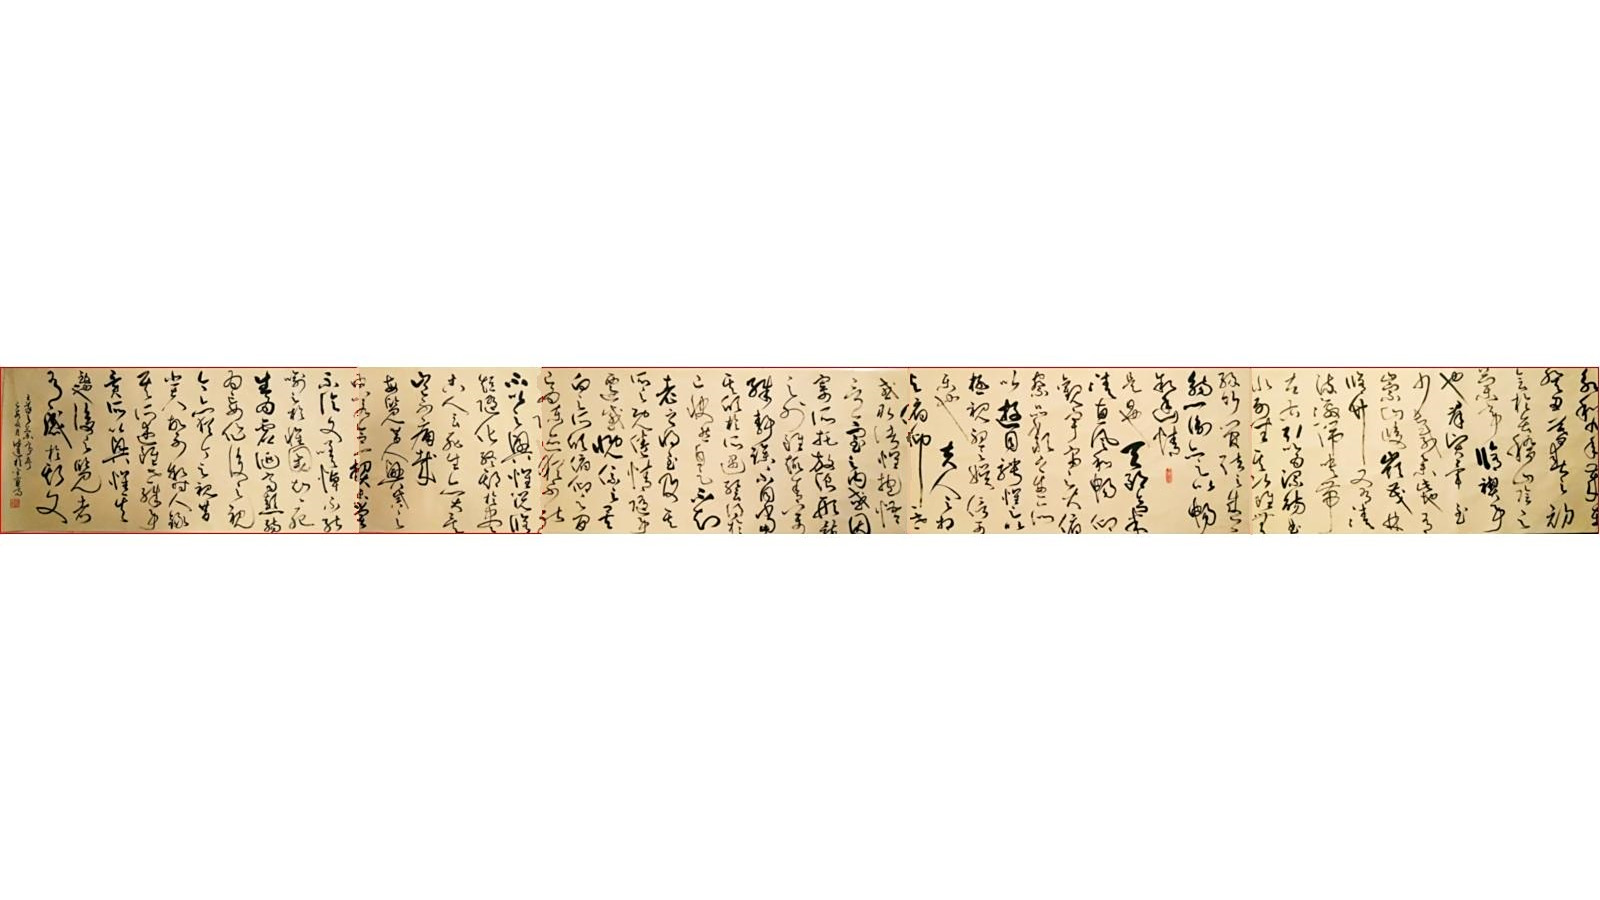 永和九年歲在
癸丑暮春之初
會於會稽山陰之
蘭亭脩禊事
也群賢畢至
少長咸集此地有
崇山峻嶺茂林
脩竹又有清
流激湍映帶
左右引以為流觴曲
水列坐其次雖無
絲竹管弦之盛一
觴一詠亦足以暢
敘幽情
是日也天朗氣
清惠風和暢仰
觀宇宙之大俯
察品類之盛所
以遊目騁懷足以
極視聽之娛信可
樂也夫人之相
與俯仰一世
或取諸懷抱悟
言一室之內或因
寄所託放浪形骸
之外雖趣舍萬
殊靜躁不同當
其欣於所遇暫得於
己快然自足不知
老之將至及其
所之既倦情隨事
遷感慨係之矣
向之所欣俯仰之間
已為陳迹猶不能
不以之興懷況脩
短隨化終期於盡
古人云死生亦大矣
豈不痛哉
每覽昔人興感之
由若合一契未嘗
不臨文嗟悼不能
喻之於懷固知一死
生為虛誕齊彭殤
為妄作後之視
今亦猶今之視昔
悲夫故列敘時人錄
其所述雖世殊事
異所以興懷其
後之覽者
有感於斯文